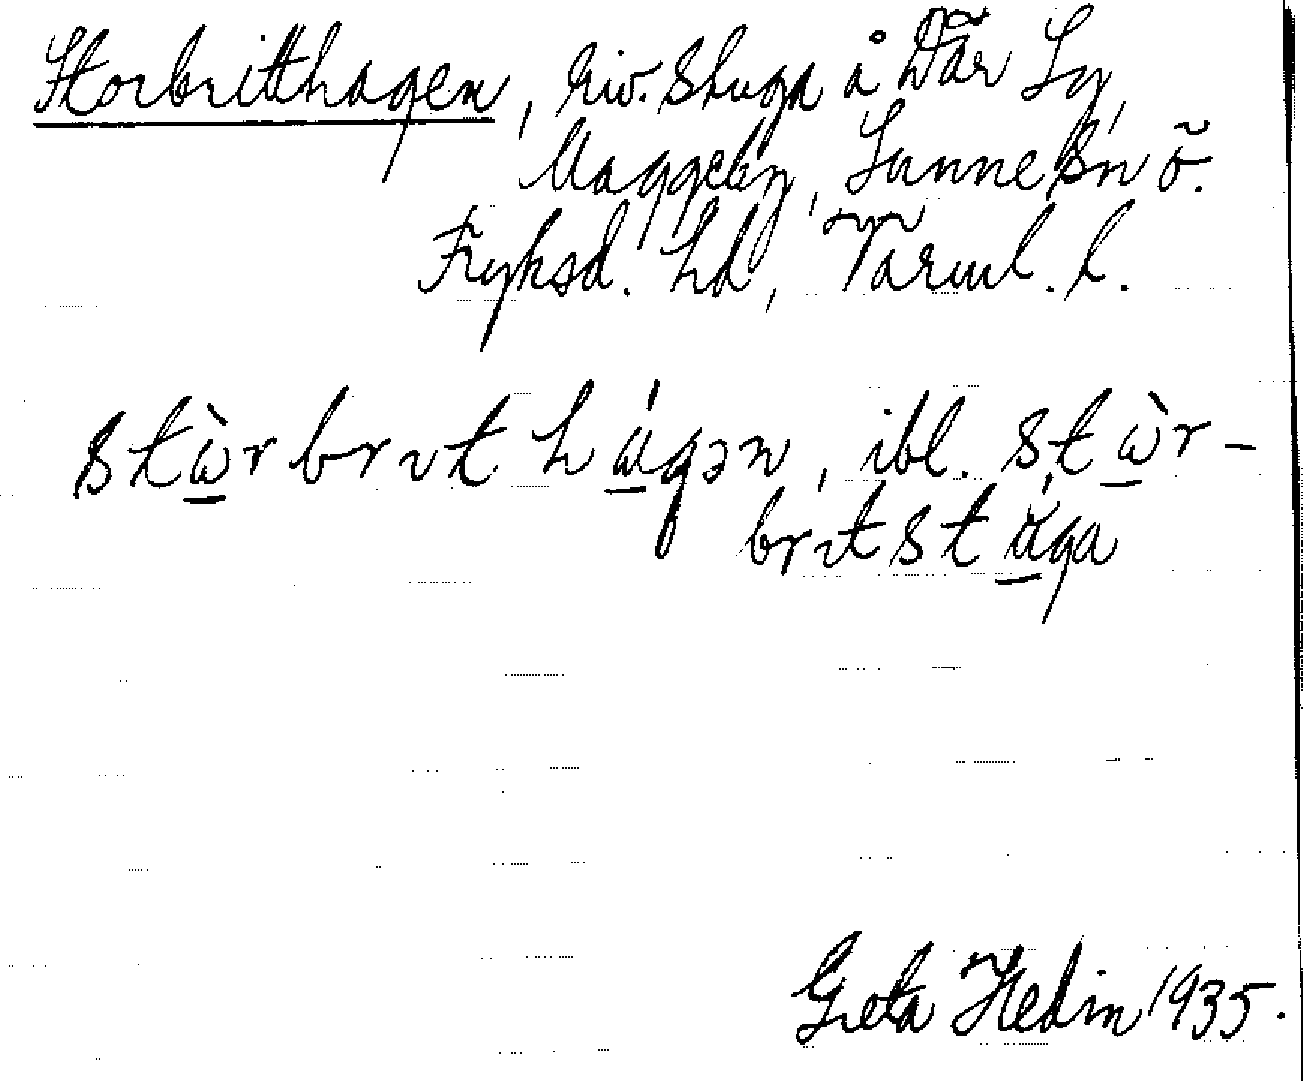 Storbritthagen, riv. stuga å Där Sg,
Maggeby, Sunne sn ö.
Fryksd. hd, Värml. l.
stὼrbrıt hágən, ibl. stὼr-
brıtstúga
Greta Hedin 1935.